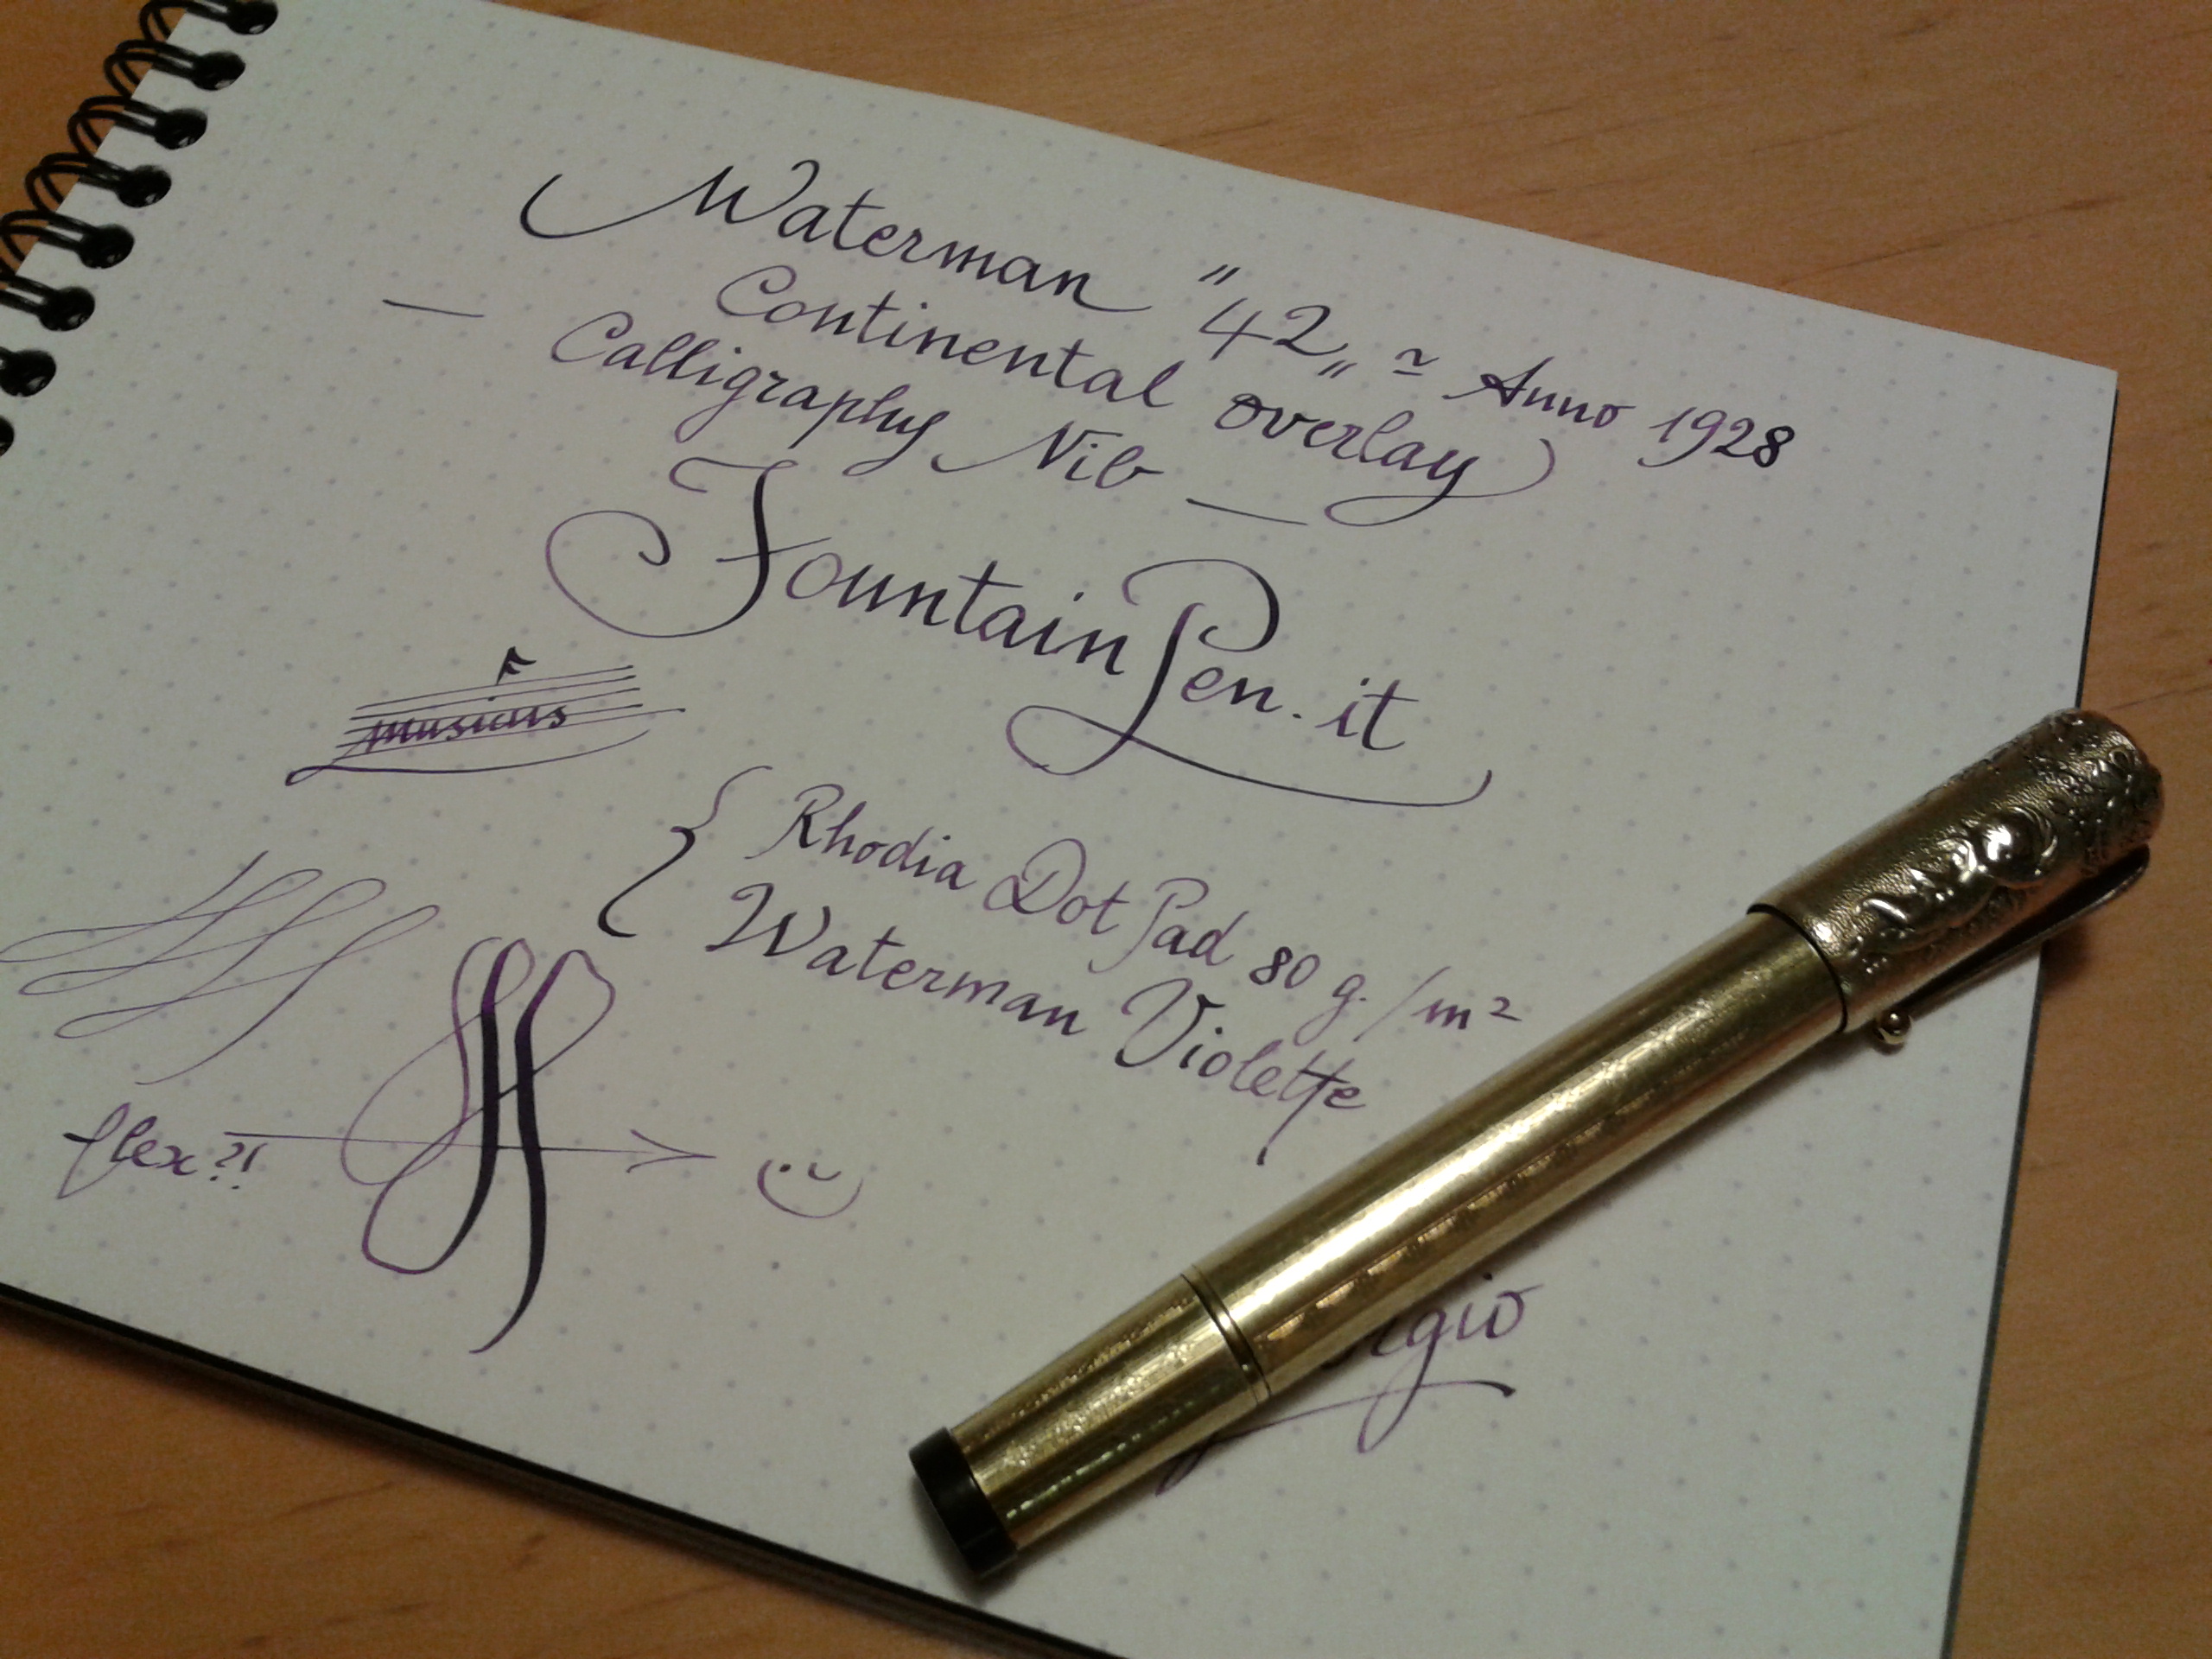 Waterman "42„ ≃ Anno 1928
Continental overlay
— Calligraphy Nib —
FountainPen.it
musicus
Rhodia Dot Pad 80 g./m²
Waterman Violette
flex?!